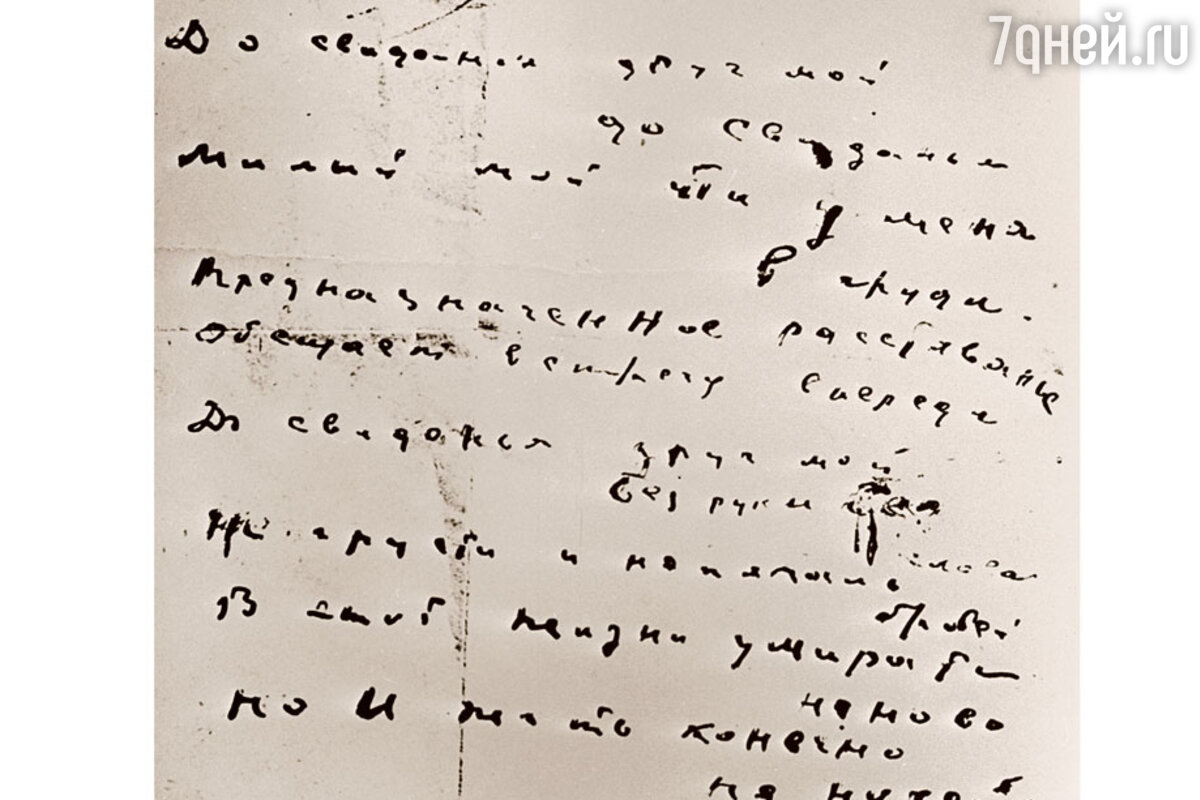 7дней.ru
До свиданья друг мой
до свиданья
Милый мой ты у меня
в груди.
Предназначенное расставанье
Обещает встречу впереди
До свиданья друг мой
без руки
слова
не грусти и не печаль
бровей
В этой жизни умирать
не ново
но и жить конечно
не новей